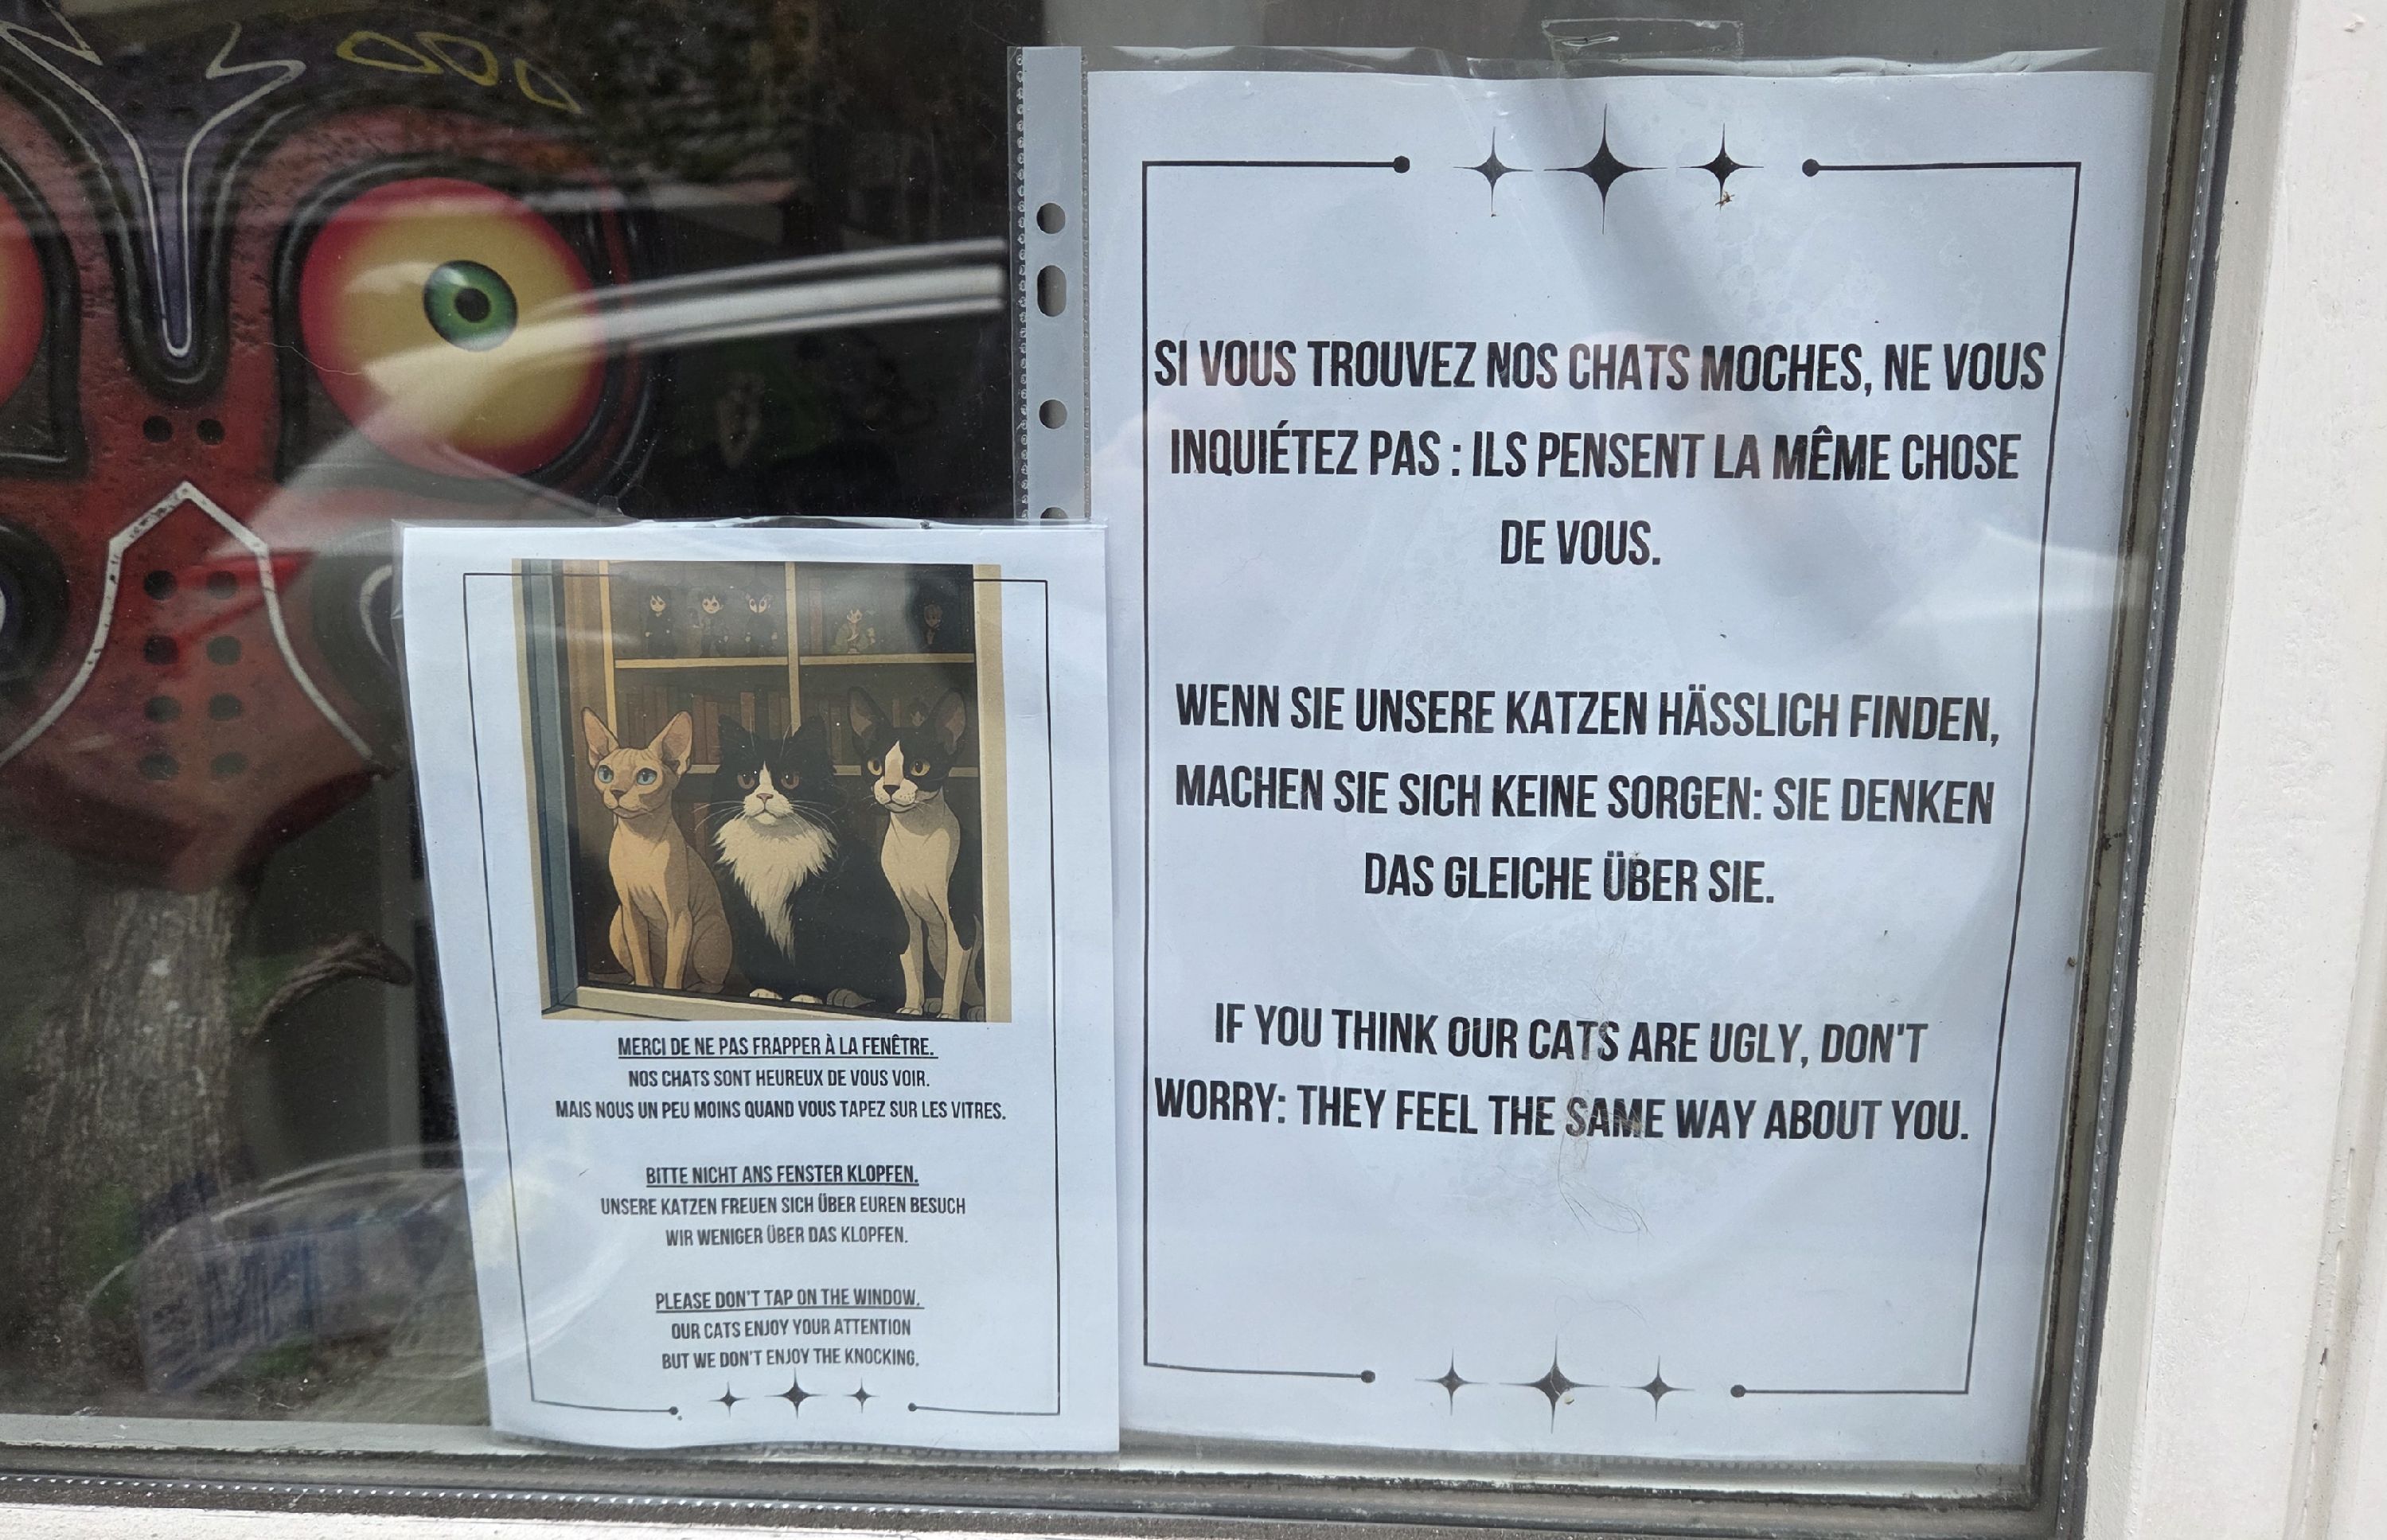 SI VOUS TROUVEZ NOS CHATS MOCHES, NE VOUS
INQUIÉTEZ PAS : ILS PENSENT LA MÊME CHOSE
DE VOUS.
WENN SIE UNSERE KATZEN HÄSSLICH FINDEN,
MACHEN SIE SICH KEINE SORGEN: SIE DENKEN
DAS GLEICHE ÜBER SIE.
IF YOU THINK OUR CATS ARE UGLY, DON'T
WORRY: THEY FEEL THE SAME WAY ABOUT YOU.
MERCI DE NE PAS FRAPPER À LA FENÊTRE.
NOS CHATS SONT HEUREUX DE VOUS VOIR.
MAIS NOUS UN PEU MOINS QUAND VOUS TAPEZ SUR LES VITRES.
BITTE NICHT ANS FENSTER KLOPFEN.
UNSERE KATZEN FREUEN SICH ÜBER EUREN BESUCH
WIR WENIGER ÜBER DAS KLOPFEN.
PLEASE DON'T TAP ON THE WINDOW.
OUR CATS ENJOY YOUR ATTENTION
BUT WE DON'T ENJOY THE KNOCKING.